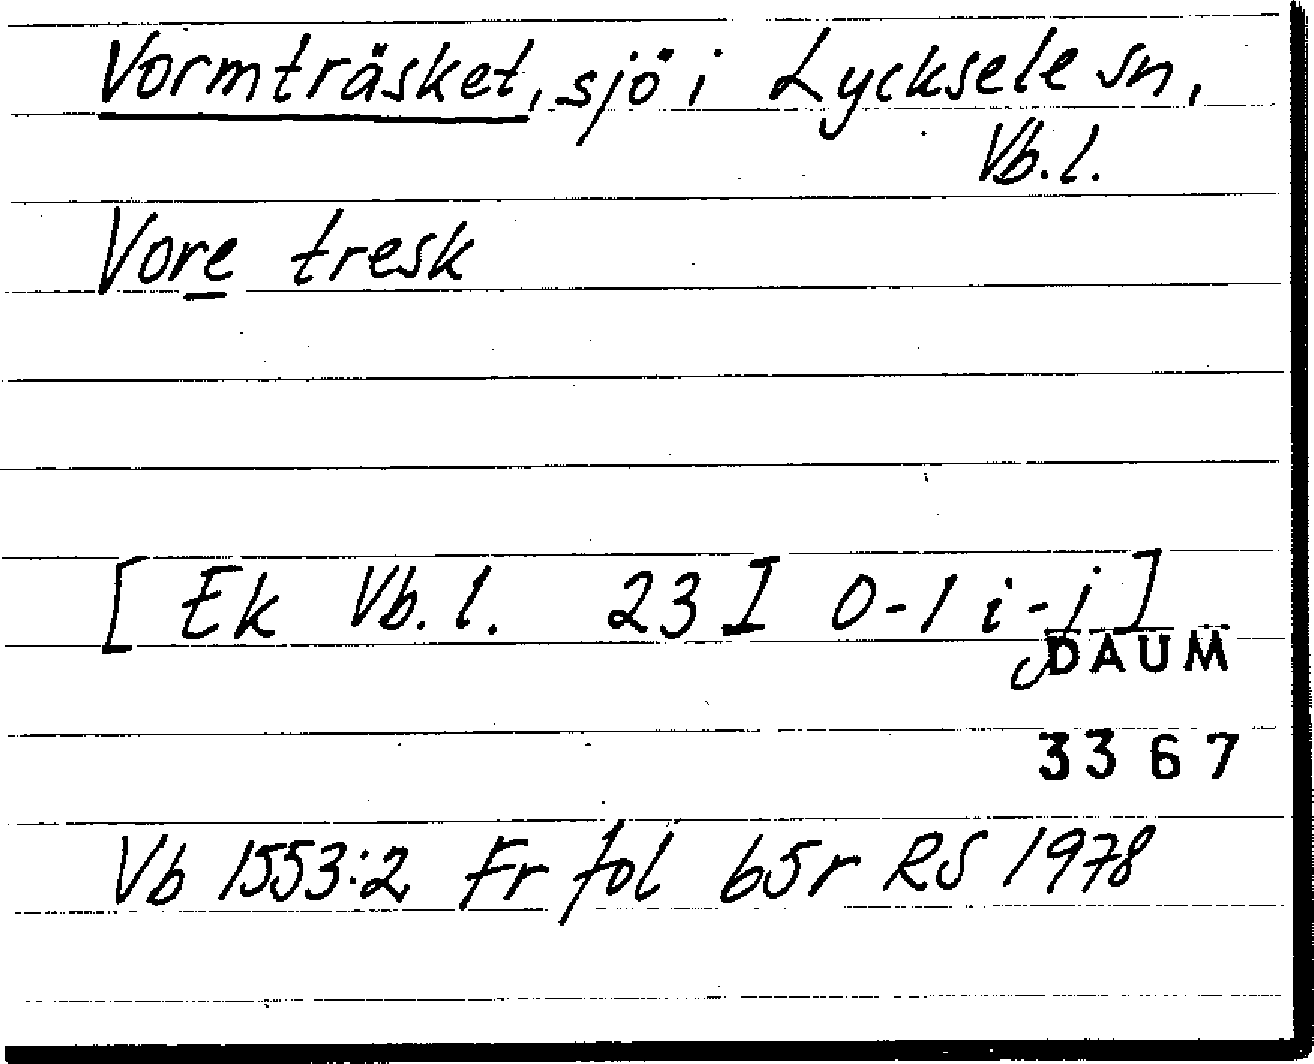 Vormträsket, sjö i Lycksele sn,
Vb.l.
Vore tresk
[ Ek Vb.l. 23 I 0-1 i-j ]
DAUM
3367
Vb 1553:2 Fr fol 65r RS 1978